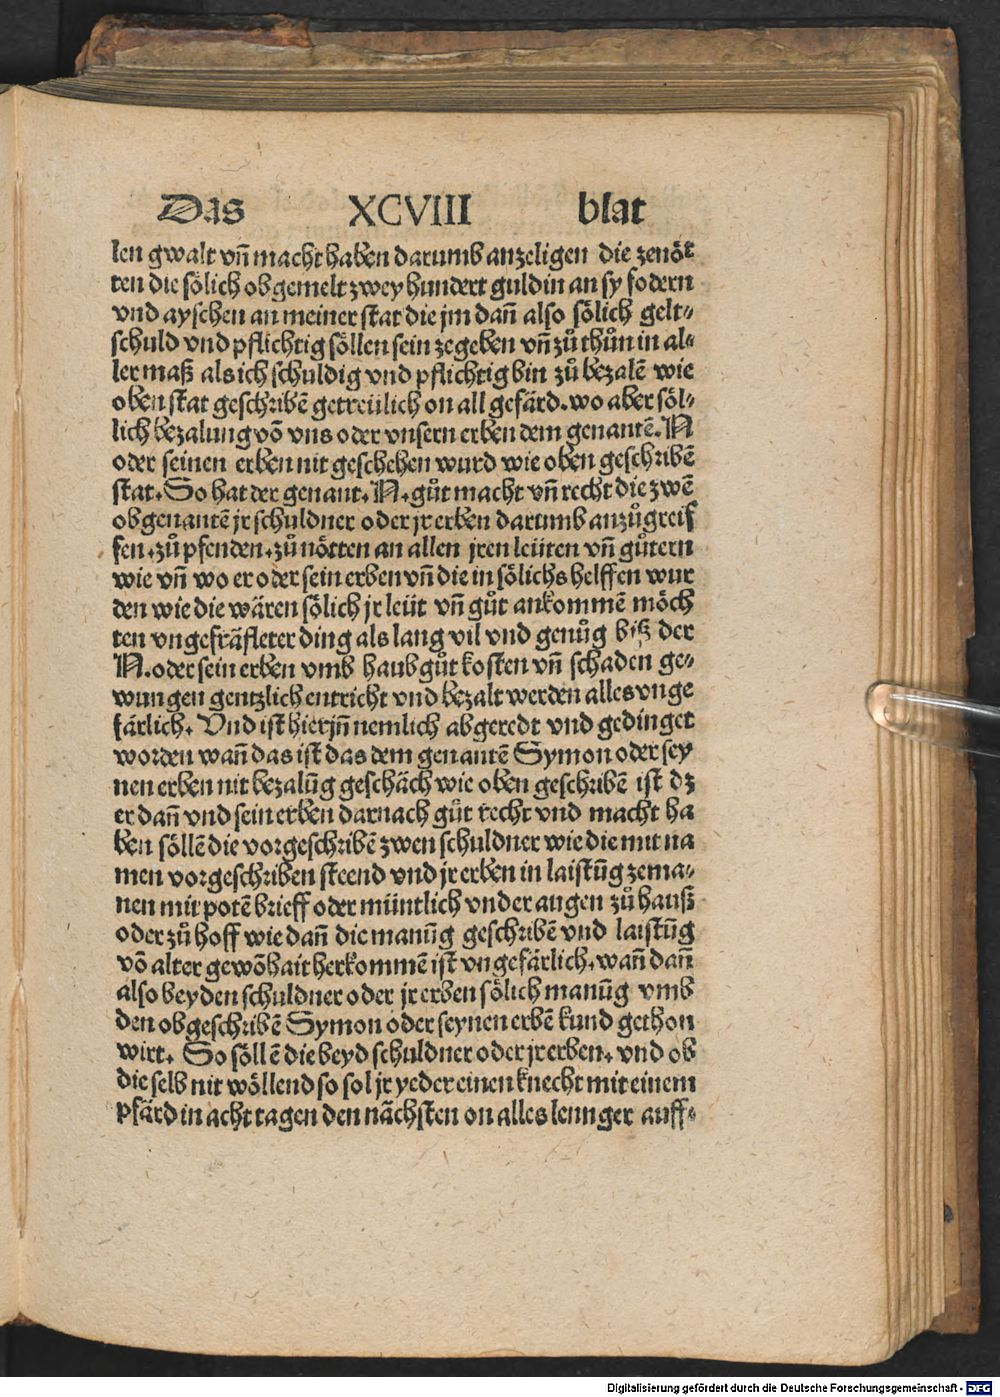 Das XCVIII blat
len gwalt vñ macht haben darumb anzeligen die zenöt
ten die sölich obgemelt zwey hundert guldin an sy fodern
vnd ayschen an meiner stat die jm dañ also sölich gelt⸗
schuld vnd pflichtig söllen sein zegeben vñ zů thůn in al⸗
ler maß als ich schuldig vnd pflichtig bin zů bezalē wie
oben stat geschribē getreülich on all gefärd. wo aber söl⸗
lich bezalung vō vns oder vnsern erben dem genantē. N
oder seinen erben nit geschehen wurd wie oben geschribē
stat. So hat der genant. N. gůt macht vñ recht die zwē
obgenantē jr schuldner oder jr erben darumb anzůgreif
fen. zů pfenden. zů nötten an allen jren leüten vñ gůtern
wie vñ wo er oder sein erben vñ die in sölichs helffen wur
den wie die wären sölich jr leüt vñ gůt ankommē möch
ten vngefräfleter ding als lang vil vnd genůg biß der
N. oder sein erben vmb haubgůt kosten vñ schaden ge⸗
wungen gentzlich entricht vnd bezalt werden alles vnge
färlich. Vnd ist hierjñ nemlich abgeredt vnd gedinget
worden wañ das ist das dem genantē Symon oder sey
nen erben nit bezalūg geschäch wie oben geschribē ist dz
er dañ vnd sein erben darnach gůt recht vnd macht ha
ben söllē die vorgeschribē zwen schuldner wie die mit na
men vorgeschriben steend vnd jr erben in laistūg zema⸗
nen mit potē brieff oder müntlich vnder augen zů hauß
oder zů hoff wie dañ die manūg geschribē vnd laistūg
vō alter gewōhait herkommē ist vngefärlich. wañ dañ
also beyden schuldner oder jr erben sölich manūg vmb
den obgeschribē Symon oder seynen erbē kund gethon
wirt. So söllē die beyd schuldner oder jr erben. vnd ob
die selb nit wöllend so sol jr yeder einen knecht mit einem
pfärd in acht tagen den nächsten on alles lennger auff⸗
Digitalisierung gefördert durch die Deutsche Forschungsgemeinschaft - DFG